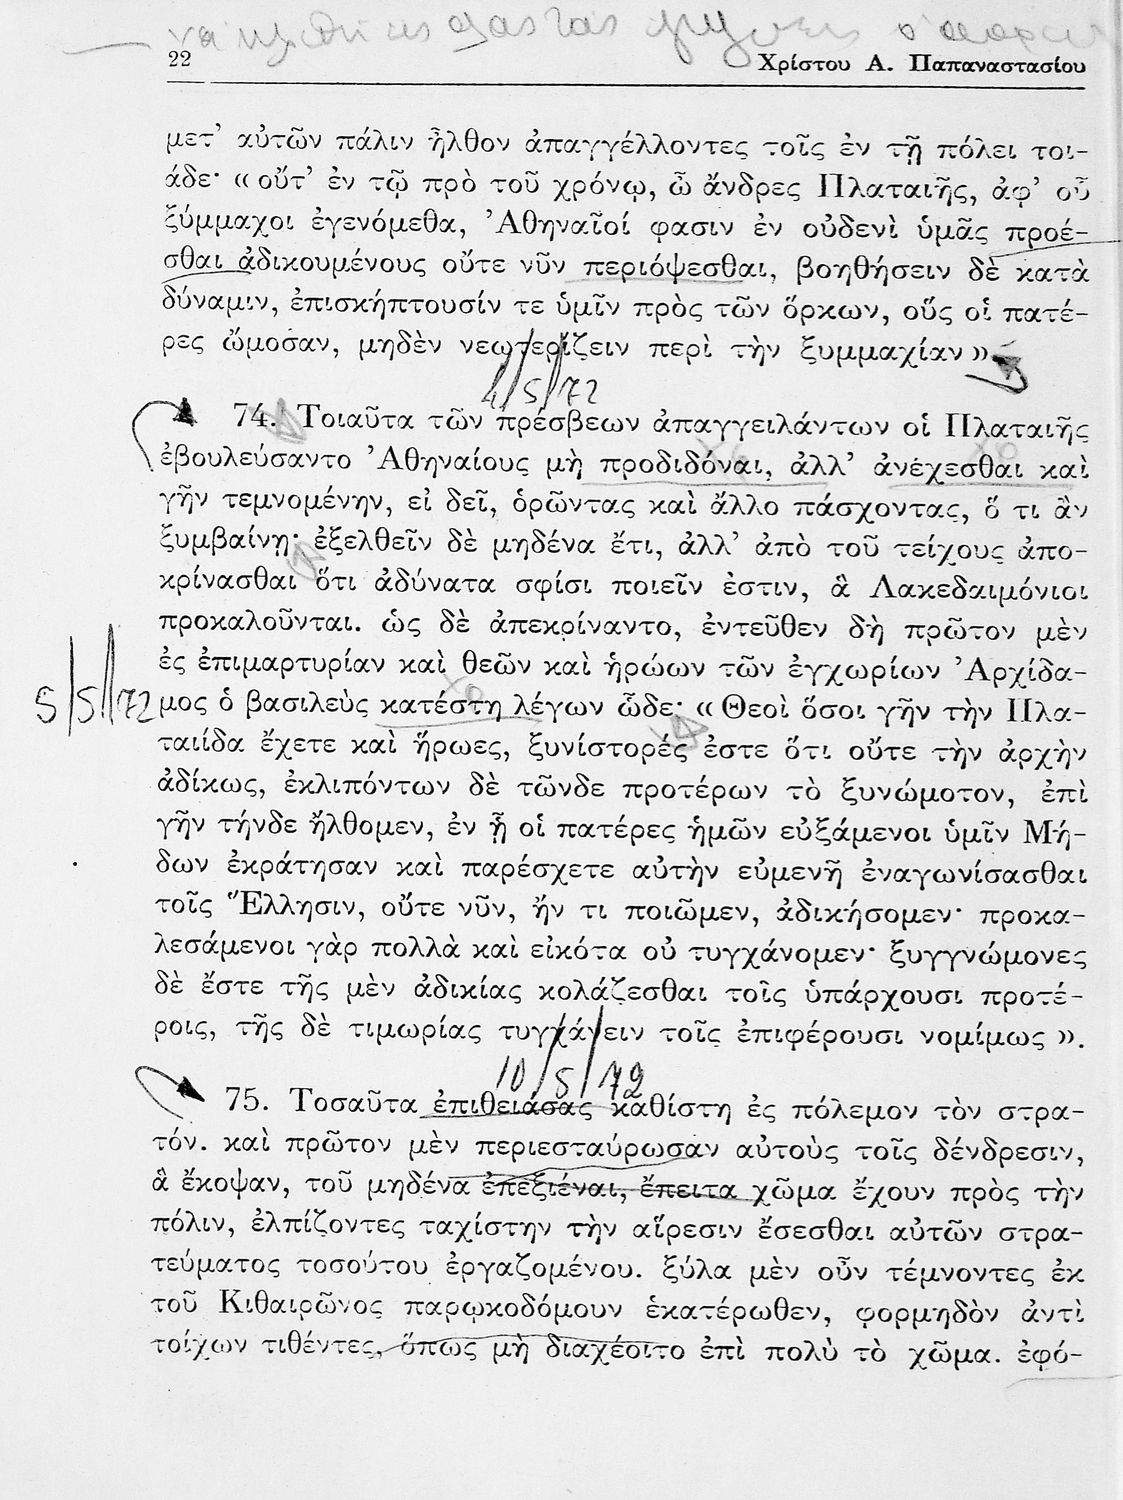 νὰ κλιθῆ εἰς ὅλας τὰς
22
Χρίστου Α. Παπαναστασίου
μετ’ αὐτῶν πάλιν ἦλθον ἀπαγγέλλοντες τοῖς ἐν τῇ πόλει τοι-
άδε· « οὔτ’ ἐν τῷ πρὸ τοῦ χρόνῳ, ὦ ἄνδρες Πλαταιῆς, ἀφ’ οὗ
ξύμμαχοι ἐγενόμεθα, ’Αθηναῖοί φασιν ἐν οὐδενὶ ὑμᾶς προέ-
σθαι ἀδικουμένους οὔτε νῦν περιόψεσθαι, βοηθήσειν δὲ κατὰ
δύναμιν, ἐπισκήπτουσίν τε ὑμῖν πρὸς τῶν ὅρκων, οὓς οἱ πατέ-
ρες ὤμοσαν, μηδὲν νεωτερίζειν περὶ τὴν ξυμμαχίαν ».
4/5/72
74. Τοιαῦτα τῶν πρέσβεων ἀπαγγειλάντων οἱ Πλαταιῆς
ἐβουλεύσαντο ’Αθηναίους μὴ προδιδόναι, ἀλλ’ ἀνέχεσθαι καὶ
γῆν τεμνομένην, εἰ δεῖ, ὁρῶντας καὶ ἄλλο πάσχοντας, ὅ τι ἂν
ξυμβαίνῃ· ἐξελθεῖν δὲ μηδένα ἔτι, ἀλλ’ ἀπὸ τοῦ τείχους ἀπο-
κρίνασθαι ὅτι ἀδύνατα σφίσι ποιεῖν ἐστιν, ἃ Λακεδαιμόνιοι
προκαλοῦνται. ὡς δὲ ἀπεκρίναντο, ἐντεῦθεν δὴ πρῶτον μὲν
ἐς ἐπιμαρτυρίαν καὶ θεῶν καὶ ἡρώων τῶν ἐγχωρίων ’Αρχίδα-
5/5/72
μος ὁ βασιλεὺς κατέστη λέγων ὧδε· « Θεοὶ ὅσοι γῆν τὴν Πλα-
ταιίδα ἔχετε καὶ ἥρωες, ξυνίστορές ἐστε ὅτι οὔτε τὴν ἀρχὴν
ἀδίκως, ἐκλιπόντων δὲ τῶνδε προτέρων τὸ ξυνώμοτον, ἐπὶ
γῆν τήνδε ἤλθομεν, ἐν ᾗ οἱ πατέρες ἡμῶν εὐξάμενοι ὑμῖν Μή-
δων ἐκράτησαν καὶ παρέσχετε αὐτὴν εὐμενῆ ἐναγωνίσασθαι
τοῖς Ἕλλησιν, οὔτε νῦν, ἤν τι ποιῶμεν, ἀδικήσομεν· προκα-
λεσάμενοι γὰρ πολλὰ καὶ εἰκότα οὐ τυγχάνομεν· ξυγγνώμονες
δὲ ἔστε τῆς μὲν ἀδικίας κολάζεσθαι τοῖς ὑπάρχουσι προτέ-
ροις, τῆς δὲ τιμωρίας τυγχάνειν τοῖς ἐπιφέρουσι νομίμως ».
10/5/72
75. Τοσαῦτα ἐπιθειάσας καθίστη ἐς πόλεμον τὸν στρα-
τόν. καὶ πρῶτον μὲν περιεσταύρωσαν αὐτοὺς τοῖς δένδρεσιν,
ἃ ἔκοψαν, τοῦ μηδένα ἐπεξιέναι, ἔπειτα χῶμα ἔχουν πρὸς τὴν
πόλιν, ἐλπίζοντες ταχίστην τὴν αἵρεσιν ἔσεσθαι αὐτῶν στρα-
τεύματος τοσούτου ἐργαζομένου. ξύλα μὲν οὖν τέμνοντες ἐκ
τοῦ Κιθαιρῶνος παρῳκοδόμουν ἑκατέρωθεν, φορμηδὸν ἀντὶ
τοίχων τιθέντες, ὅπως μὴ διαχέοιτο ἐπὶ πολὺ τὸ χῶμα. ἐφό-